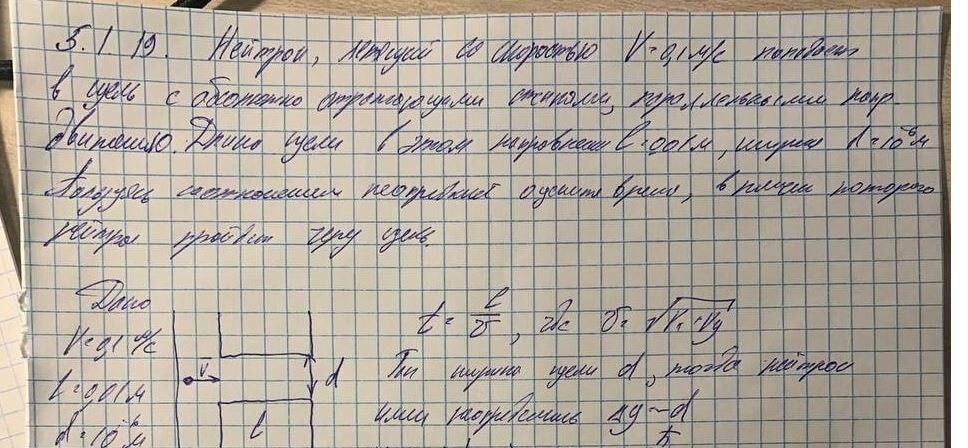 5.1 19. Нейтрон, летящий со скоростью V=0,1 м/с попадает
в щель с абсолютно отражающими стенками, параллельными напр.
движению. Длина щели в этом направлении l=0,01 м, ширина d=10⁻⁶ м
Пользуясь соотношением неопред оцените время, в течении которого
нейтрон пройдет через щель.
Дано
V=0,1 м/с
l=0,01 м
d=10⁻⁶ м
V
d
l
t = l/v, где v=
Т.к ширина щели d, тогда нейтрон
Δy ~ d
ħ